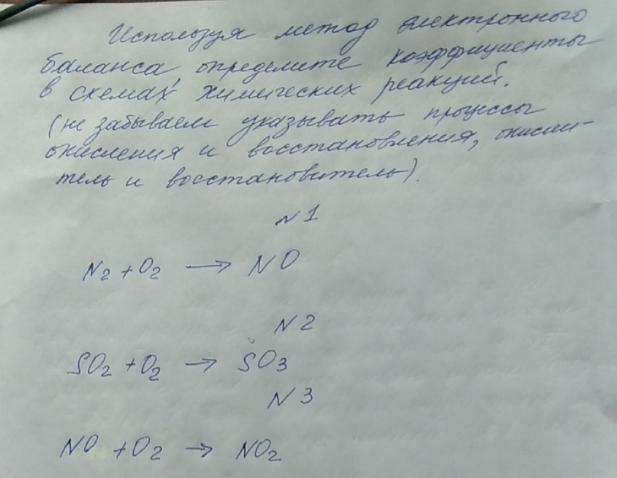 Используя метод электронного
баланса определите коэффициенты
в схемах химических реакций.
(не забываем указывать процессы
окисления и восстановления, окисли-
тель и восстановитель).
N1
N₂ + O₂ → NO
N2
SO₂ + O₂ → SO₃
N3
NO + O₂ → NO₂